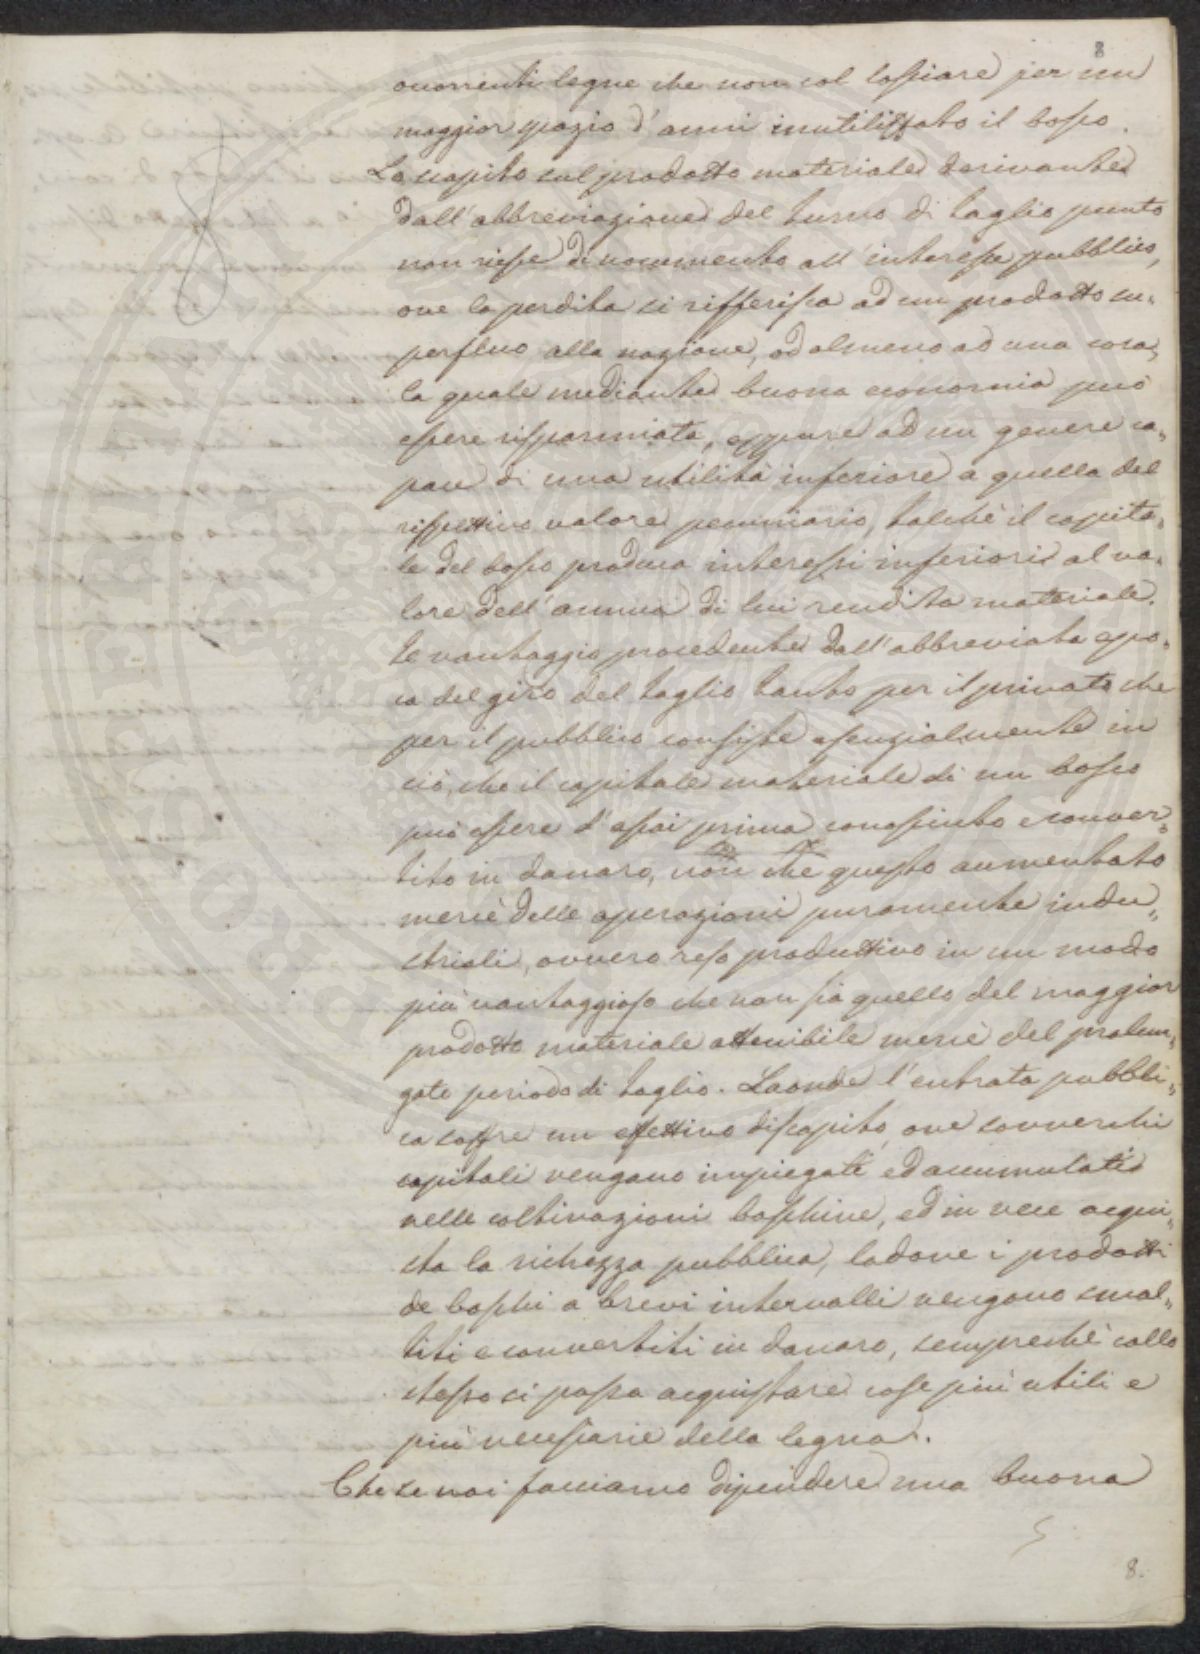 8
occorrenti legne che non col lasciare per un
maggior spazio d'anni inutilizzato il bosco.
Lo scapito sul prodotto materiale derivante
dall'abbreviazione del turno di taglio punto
non riesce di nocumento all'interesse pubblico,
ove la perdita si rifferisca ad un prodotto su„
perfluo alla nazione, od almeno ad una cosa,
la quale mediante buona economia può
essere risparmiata, oppure ad un genere ca„
pace di una utilità inferiore a quella del
rispettivo valore pecuniario, talchè il capita„
le del bosco produca interessi inferiori al va„
lore dell'annua di lui rendita materiale.
Le vantaggio procedente dall'abbreviata epo„
ca del giro del taglio tanto per il privato che
per il pubblico consiste essenzialmente in
ciò, che il capitale materiale di un bosco
può essere d'assai prima conosciuto e conver„
tito in danaro, non che questo aumentato
mercè delle operazioni puramente indu„
striali, ovvero reso produttivo in un modo
più vantaggioso che non sia quello del maggior
prodotto materiale ottenibile mercè del prolun„
gato periodo di taglio. Laonde l'entrata pubbli„
ca soffre un effettivo discapito, ove soverchi
capitali vengano impiegati ed accumulati
nelle coltivazioni boschive, ed in vece acqui„
sta la richezza pubblica, ladove i prodotti
de boschi a brevi intervalli vengono smal„
titi e convertiti in danaro, sempreché collo
stesso si possa acquistare cose più utili e
più necessarie della legna.
Che se noi facciamo dipendere una buona
8.